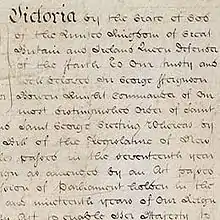 Victoria by the Grace of God
of the United Kingdom of Great
Britain and Ireland Queen Defender
of the Faith To Our trusty and
well beloved Sir George Ferguson
Bowen Knight Commander of Our
most Distinguished Order of Saint
and Saint George Greeting Whereas by
of the Legislature of
passed in the seventeenth year
reign as amended by an Act passed
of Parliament holden in the
and nineteenth years of Our Reign
Act to enable Her Majesty